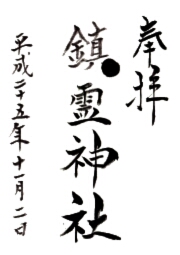 奉拝
鎮霊神社
平成二十五年十一月二日